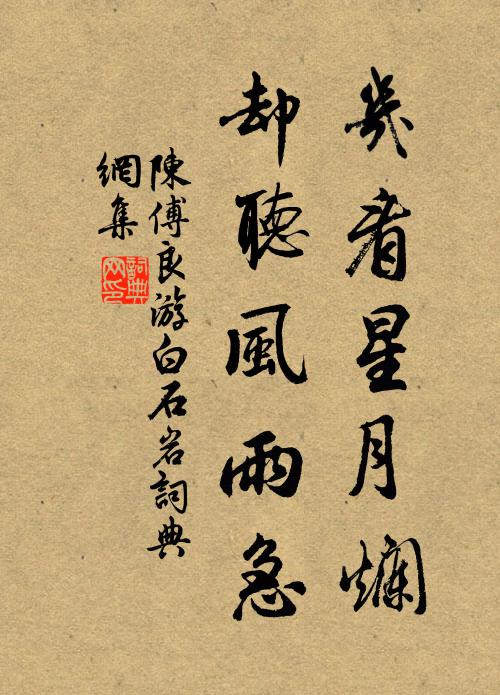 幾看星月爛
却聽風雨急
陳傅良游白石岩詞典
網集
詞典
网印